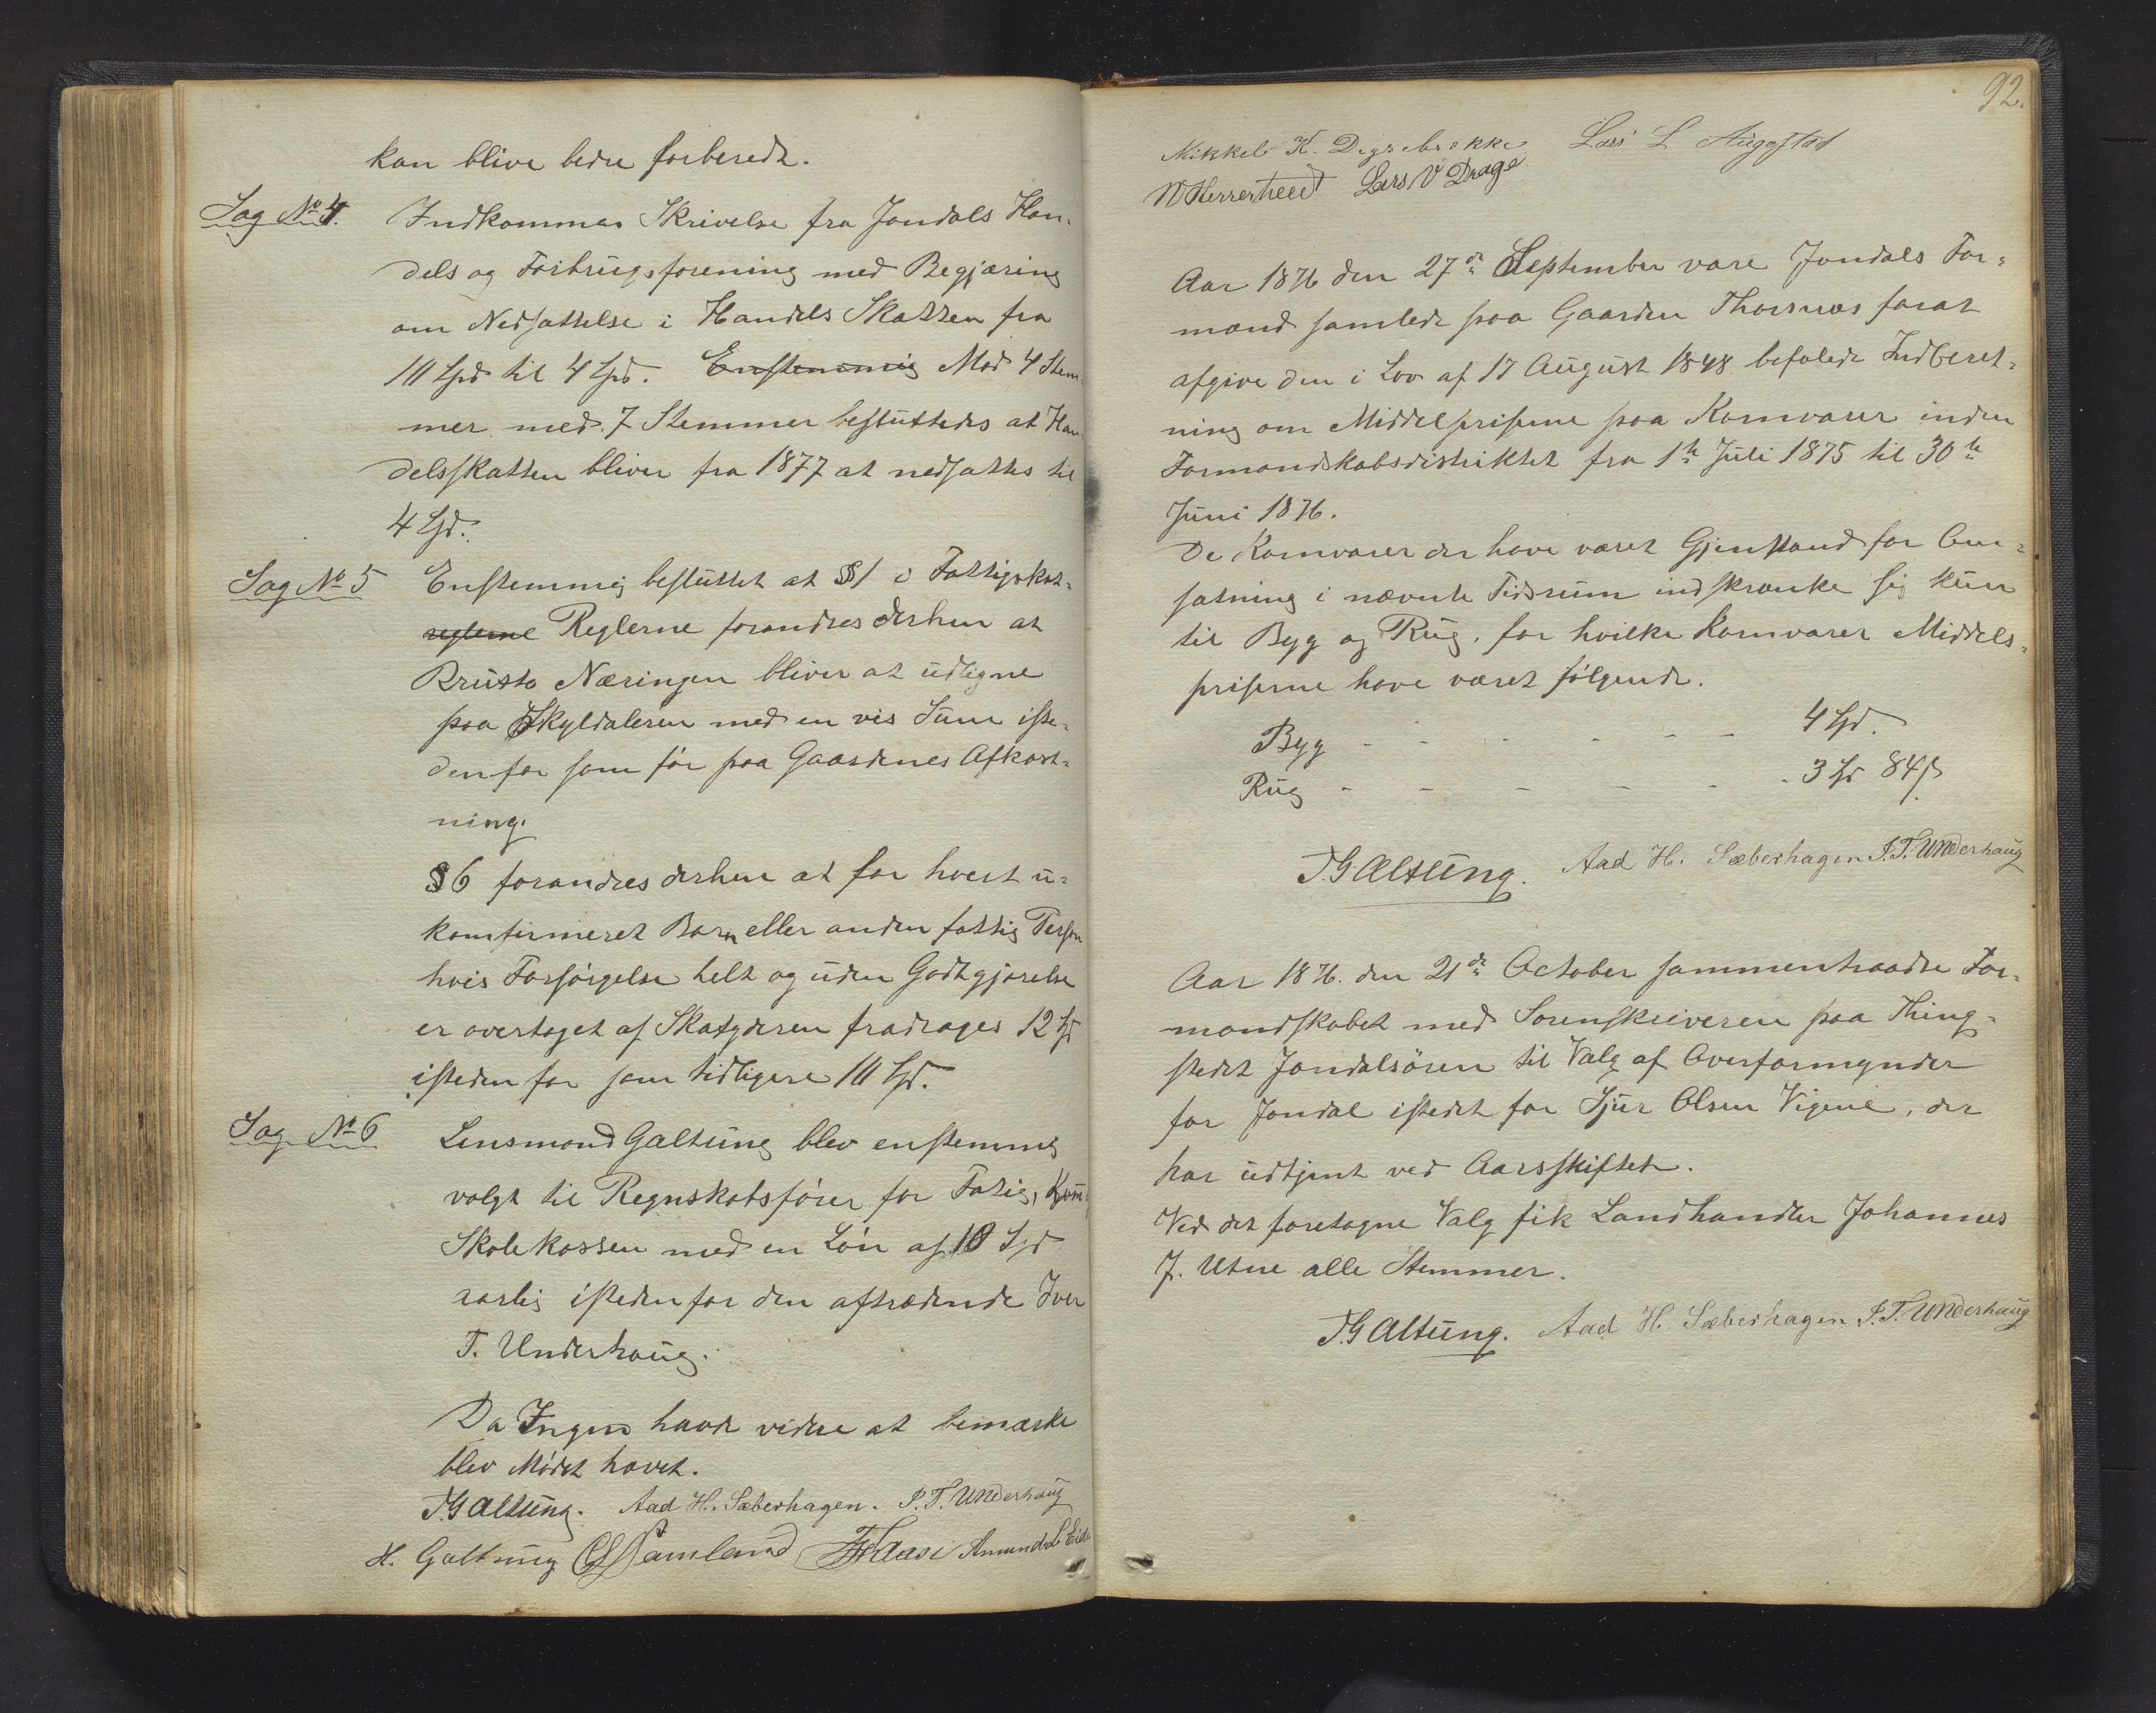 kan blive bedre forberedt.
Sag No 4.
Indkommen Skrivelse fra Jondals Han-
dels og Forbrugsforening med Begjæring
om Nedsættelse i Handels Skatten fra
10 Spd til 4 Spd. Enstemmig Mod 4 Stem-
mer med 7 Stemmer besluttedes at Han-
delsskatten bliver fra 1877 at nedsættes til
4 Spd.
Sag No 5
Enstemmig besluttet at §1 i Fattigskat-
reglerne Reglerne forandres derhen at
Brutto Næringen bliver at udligne
paa Skyldaleren med en vis Sum iste-
denfor som før paa Gaardenes Afkast-
ning.
§6 forandres derhen at for hvert u-
konfirmeret Barn eller anden fattig Person
hvis Forsørgelse helt og uden Godtgjørelse
er overtaget af Skatyderen fradrages 12 Spd
isteden for som tidligere 10 Spd.
Sag No 6
Lensmand Galtung blev enstemmig
valgt til Regnskabsfører for Fattig, Kom,
Skolekassen med en Løn af 10 Spd
aarlig istedenfor den aftrædende Iver
T. Underhaug.
Da Ingen havde videre at bemærke
blev Mødet hævet.
T. Galtung. Aad H. Sæberhagen. I. T. Underhaug
H. Galtung Samland Aasi Amund L Eide
92.
Mikkel K. Degrebrekke Lars L Augestad
N Herrertveed Lars V Drage
Aar 1876 den 27de September vare Jondals For-
mænd samlede paa Gaarden Thorsnæs forat
afgive den i Lov af 17 August 1848 befalede Indberet-
ning om Middelpriserne paa Kornvarer inden
Formandskabsdistriktet fra 1te Juli 1875 til 30te
Juni 1876.
De Kornvarer der have været Gjenstand for Om-
sætning i nævnte Tidsrum indskrænke sig kun
til Byg og Rug, for hvilke Kornvarer Middels-
priserne have været følgende.
Byg - - - - - - 4 Spd.
Rug - - - - - - 3 Spd 84 ß.
T. Galtung. Aad H. Sæberhagen I. T. Underhaug
Aar 1876. den 21de October sammentraadte For-
mandskabet med Sorenskriveren paa Thing-
stedet Jondalsøren til Valg af Overformynder
for Jondal istedet for Sjur Olsen Vigene, der
har udtjent ved Aarsskiftet.
Ved det foretagne Valg fik Landhandler Johannes
J. Utne alle Stemmer.
T. Galtung. Aad H. Sæberhagen I. T. Underhaug